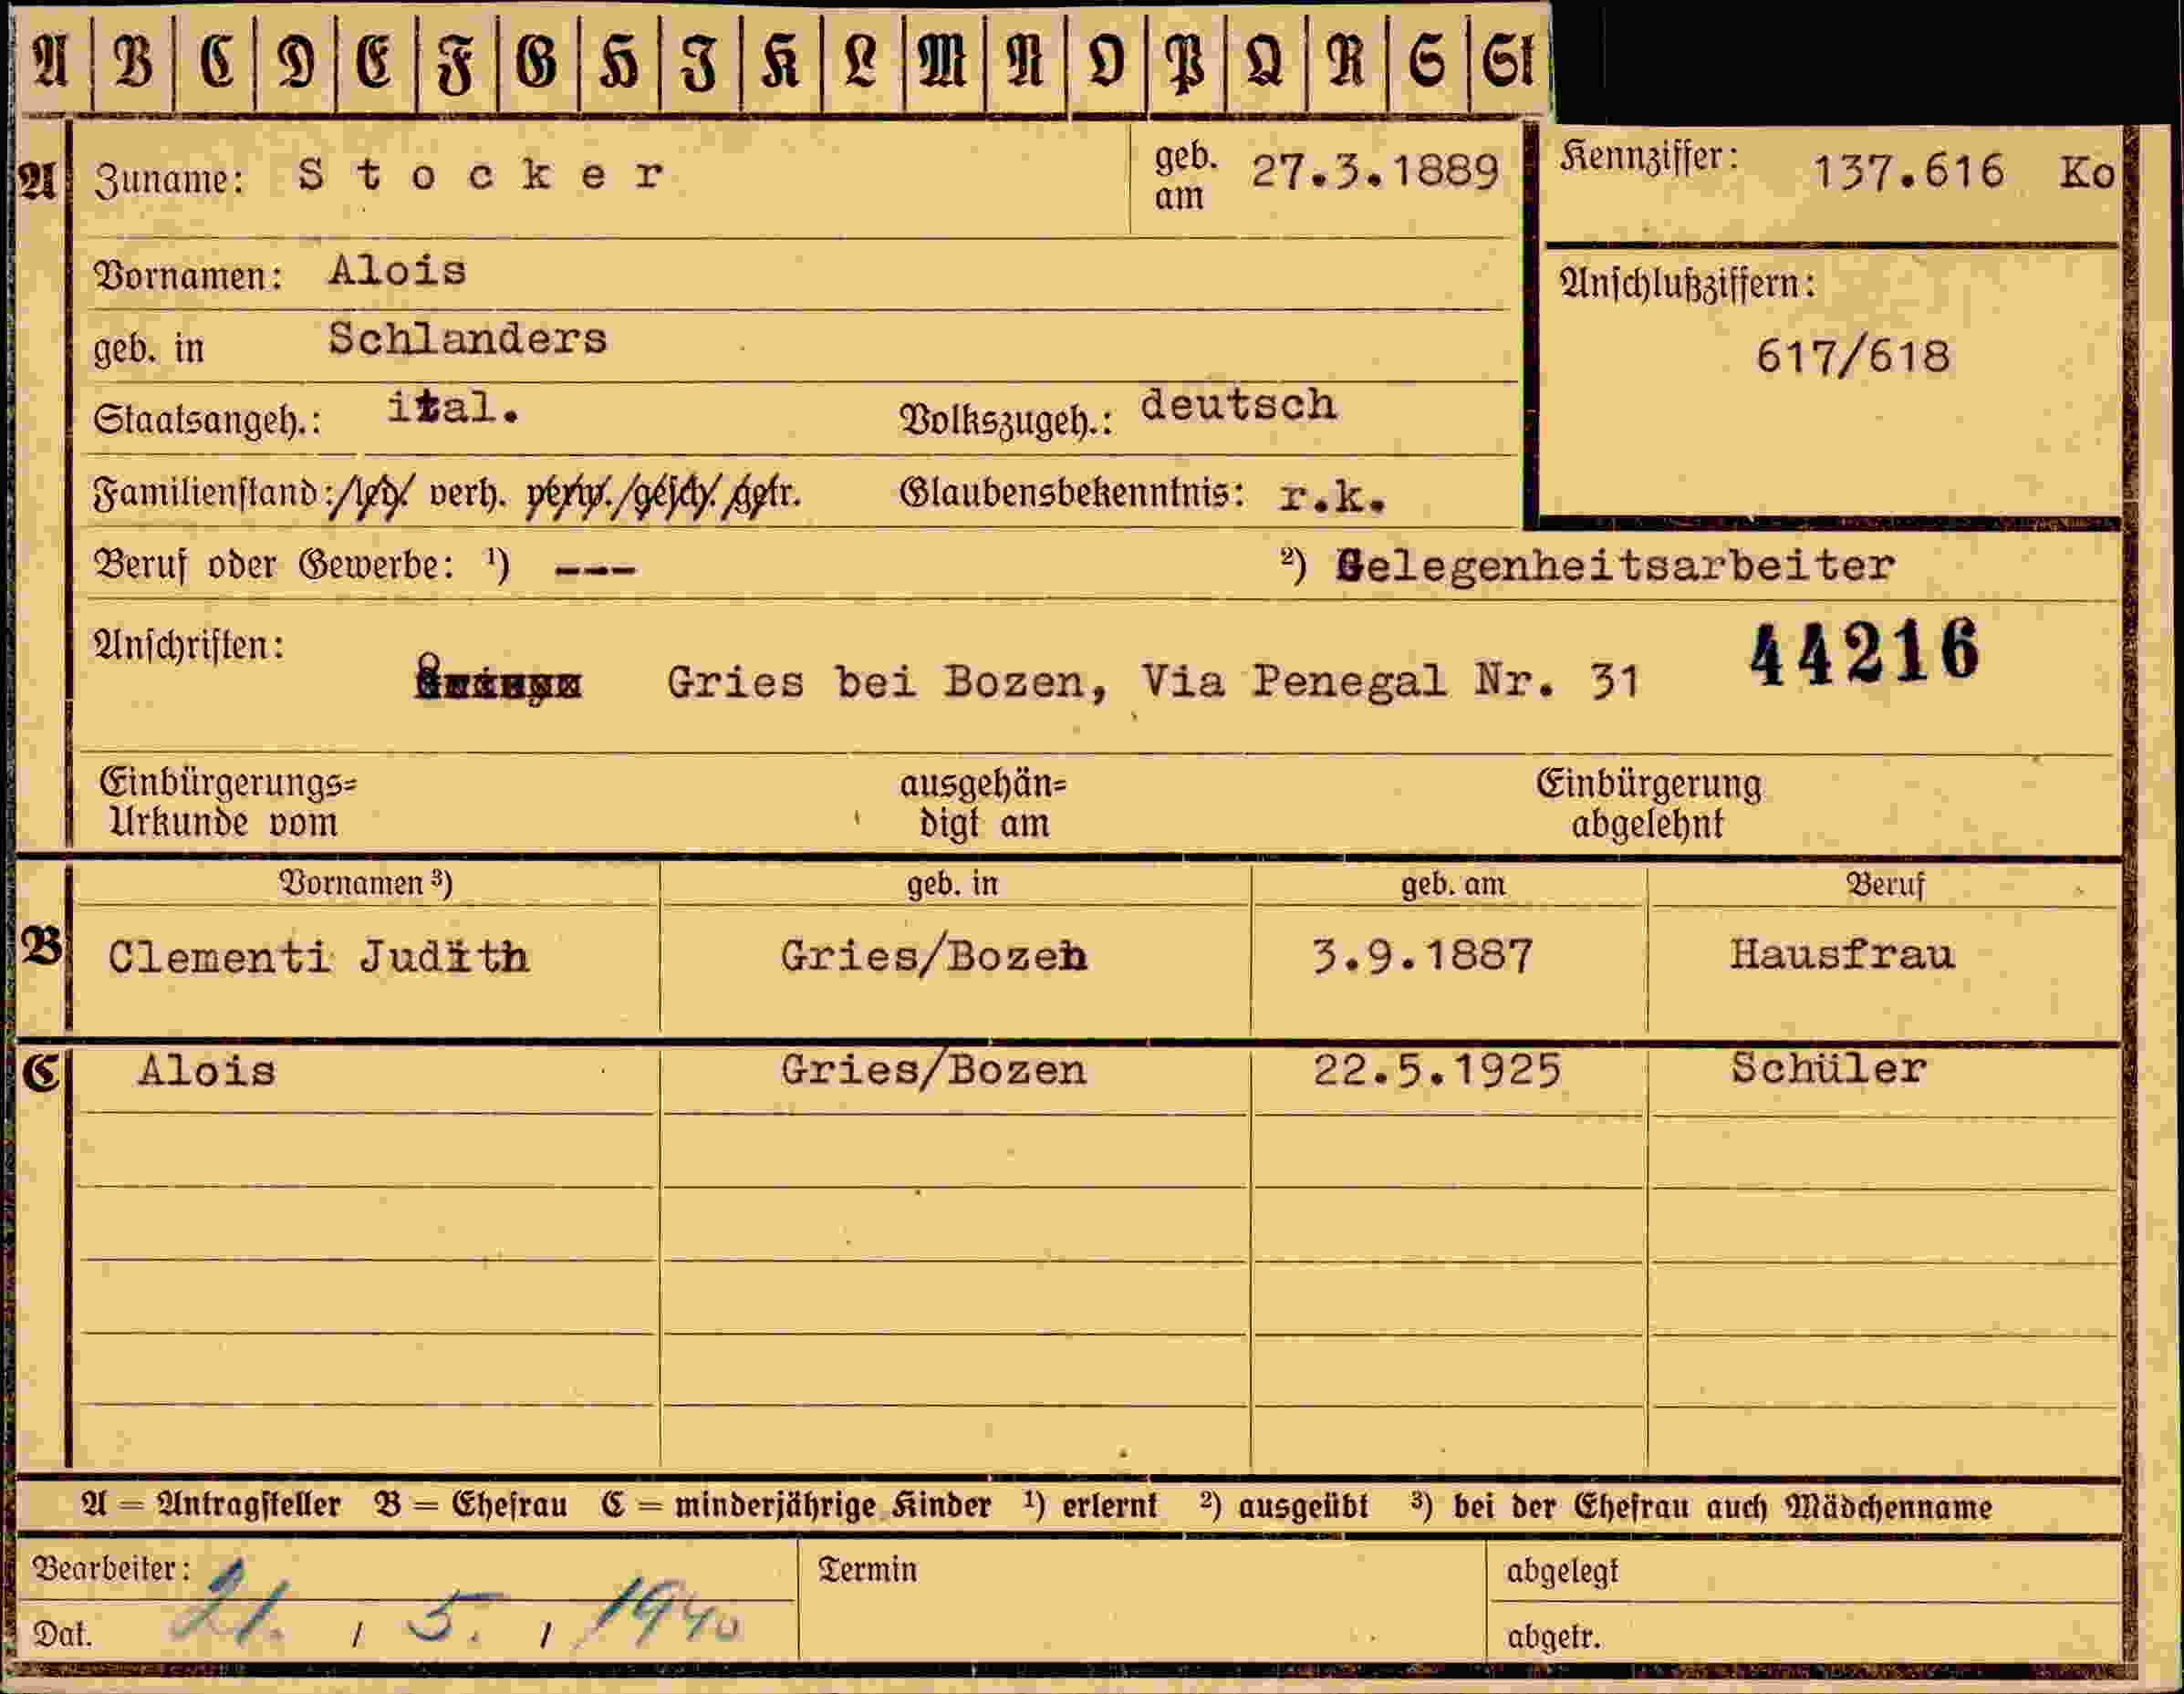 A B C D E F G H I K L M N O P Q R S St
A Zuname: Stocker geb. am 27.3.1889
Kennziffer: 137.616 Ko
Vornamen: Alois
Anschlußziffern:
617/618
geb. in Schlanders
Staatsangeh.: ital. Volkszugeh.: deutsch
Familienstand: led. verh. verw. gesch. getr. Glaubensbekenntnis: r.k.
Beruf oder Gewerbe: ¹) --- ²) Gelegenheitsarbeiter
Anschriften: 44216
Gries bei Bozen, Via Penegal Nr. 31
Einbürgerungs= ausgehän= Einbürgerung
Urkunde vom digt am abgelehnt
Vornamen ³) geb. in geb. am Beruf
B Clementi Judith Gries/Bozen 3.9.1887 Hausfrau
C Alois Gries/Bozen 22.5.1925 Schüler
A = Antragsteller B = Ehefrau C = minderjährige Kinder ¹) erlernt ²) ausgeübt ³) bei der Ehefrau auch Mädchenname
Bearbeiter: Termin abgelegt
Dat. 21. / 5. / 1940 abgetr.